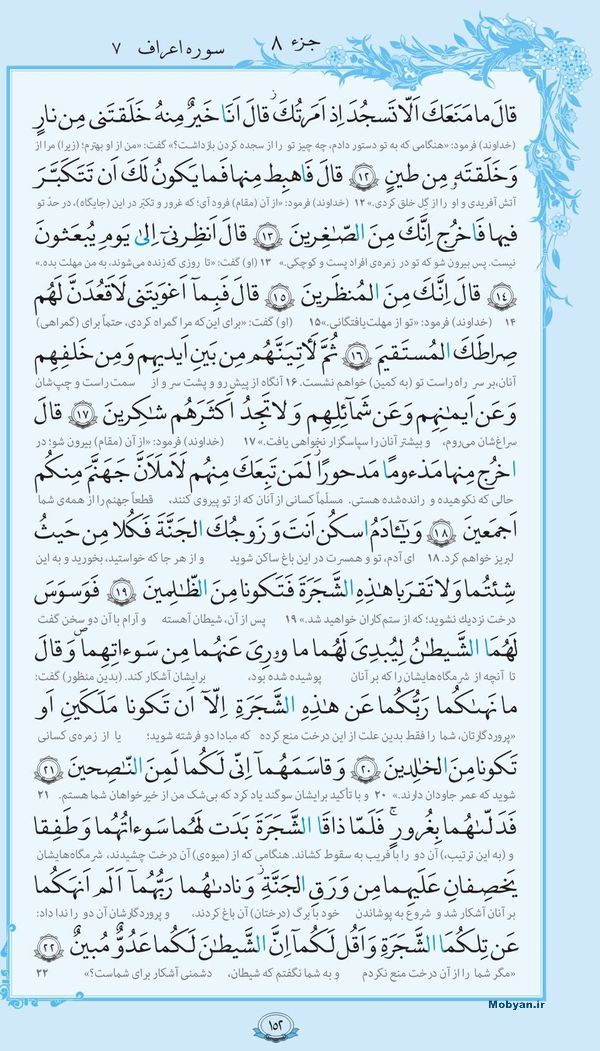 جزء ۸
سوره اعراف ۷
قالَ ما مَنَعَكَ اَلّا تَسجُدَ اِذ اَمَرتُكَ قالَ اَنَا خَيرٌ مِنهُ خَلَقتَنى مِن نارٍ
(خداوند) فرمود: «هنگامی که به تو دستور دادم، چه چیز تو را از سجده کردن بازداشت؟» گفت: «من از او بهترم؛ (زیرا) مرا از
وَ خَلَقتَه‌و مِن طينٍ ۱۲ قالَ فَاهبِط مِنها فَما يَكونُ لَكَ اَن تَتَكَبَّرَ
آتش آفریدی و او را از گل خلق کردی.» ۱۲ (خداوند) فرمود: «از آن (مقام) فرود آی؛ که غرور و تکبّر در این (جایگاه)، در حدّ تو
فيها فَاخرُج اِنَّكَ مِنَ الصّٰغِرينَ ۱۳ قالَ اَنظِرنىٓ اِلىٰ يَومِ يُبعَثونَ
نیست. پس بیرون شو که تو در زمره‌ی افراد پست و کوچکی.» ۱۳ (او) گفت: «تا روزی که زنده می‌شوند، به من مهلت بده.»
۱۴ قالَ اِنَّكَ مِنَ المُنظَرينَ ۱۵ قالَ فَبِمآ اَغوَيتَنى لَاَقعُدَنَّ لَهُم
۱۴ (خداوند) فرمود: «تو از مهلت‌یافتگانی.» ۱۵ (او) گفت: «برای این‌که مرا گمراه کردی، حتماً برای (گمراهی)
صِراطَكَ المُستَقيمَ ۱۶ ثُمَّ لَأٰتِيَنَّهُم مِن بَينِ اَيديهِم وَ مِن خَلفِهِم
آنان، بر سر راه راست تو (به کمین) خواهم نشست. ۱۶ آنگاه از پیش رو و پشت سر و از سمت راست و چپ‌شان
وَ عَن اَيمٰنِهِم وَ عَن شَمآئِلِهِم وَ لا تَجِدُ اَكثَرَهُم شٰكِرينَ ۱۷ قالَ
سراغ‌شان می‌روم، و بیشتر آنان را سپاسگزار نخواهی یافت.» ۱۷ (خداوند) فرمود: «از آن (مقام) بیرون شو؛ در
اخرُج مِنها مَذءومًا مَدحورًا لَمَن تَبِعَكَ مِنهُم لَاَملَاَنَّ جَهَنَّمَ مِنكُم
حالی که نکوهیده و رانده‌شده هستی. مسلّماً کسانی از آنان که از تو پیروی کنند، قطعاً جهنم را از همه‌ی شما
اَجمَعينَ ۱۸ وَ يٰٓـٔادَمُ اسكُن اَنتَ وَ زَوجُكَ الجَنَّةَ فَكُلا مِن حَيثُ
لبریز خواهم کرد. ۱۸ ای آدم، تو و همسرت در این باغ ساکن شوید و از هر جا که خواستید، بخورید و به این
شِئتُما وَ لا تَقرَبا هٰذِهِ الشَّجَرَةَ فَتَكونا مِنَ الظّٰلِمينَ ۱۹ فَوَسوَسَ
درخت نزدیک نشوید؛ که از ستم‌کاران خواهید شد.» ۱۹ پس از آن، شیطان آهسته و آرام با آن دو سخن گفت
لَهُمَا الشَّيطٰنُ لِيُبدِىَ لَهُما ما وورِىَ عَنهُما مِن سَوءٰتِهِما وَ قالَ
تا آنچه از شرمگاه‌هایشان را که بر آنان پوشیده شده بود، برایشان آشکار کند. (بدین منظور) گفت:
ما نَهىٰكُما رَبُّكُما عَن هٰذِهِ الشَّجَرَةِ اِلّآ اَن تَكونا مَلَكَينِ اَو
«پروردگارتان، شما را فقط بدین علت از این درخت منع کرده که مبادا دو فرشته شوید؛ یا از زمره‌ی کسانی
تَكونا مِنَ الخٰلِدينَ ۲۰ وَ قاسَمَهُمآ اِنّى لَكُما لَمِنَ النّٰصِحينَ ۲۱
شوید که عمر جاودان دارند.» ۲۰ و با تأکید برایشان سوگند یاد کرد که بی‌شک من از خیرخواهان شما هستم. ۲۱
فَدَلّٰىهُما بِغُرورٍ فَلَمّا ذاقَا الشَّجَرَةَ بَدَت لَهُما سَوءٰتُهُما وَ طَفِقا
و (به این ترتیب،) آن دو را با فریب به سقوط کشاند. هنگامی که از (میوه‌ی) آن درخت چشیدند، شرمگاه‌هایشان
يَخصِفانِ عَلَيهِما مِن وَرَقِ الجَنَّةِ وَ نادىٰهُما رَبُّهُمآ اَلَم اَنهَكُما
بر آنان آشکار شد و شروع به پوشاندن خود با برگ (درختان) آن باغ کردند، و پروردگارشان آن دو را ندا داد:
عَن تِلكُمَا الشَّجَرَةِ وَ اَقُل لَكُمآ اِنَّ الشَّيطٰنَ لَكُما عَدُوٌّ مُبينٌ ۲۲
«مگر شما را از آن درخت منع نکردم و به شما نگفتم که شیطان، دشمنی آشکار برای شماست؟» ۲۲
۱۵۲
Mobyan.ir